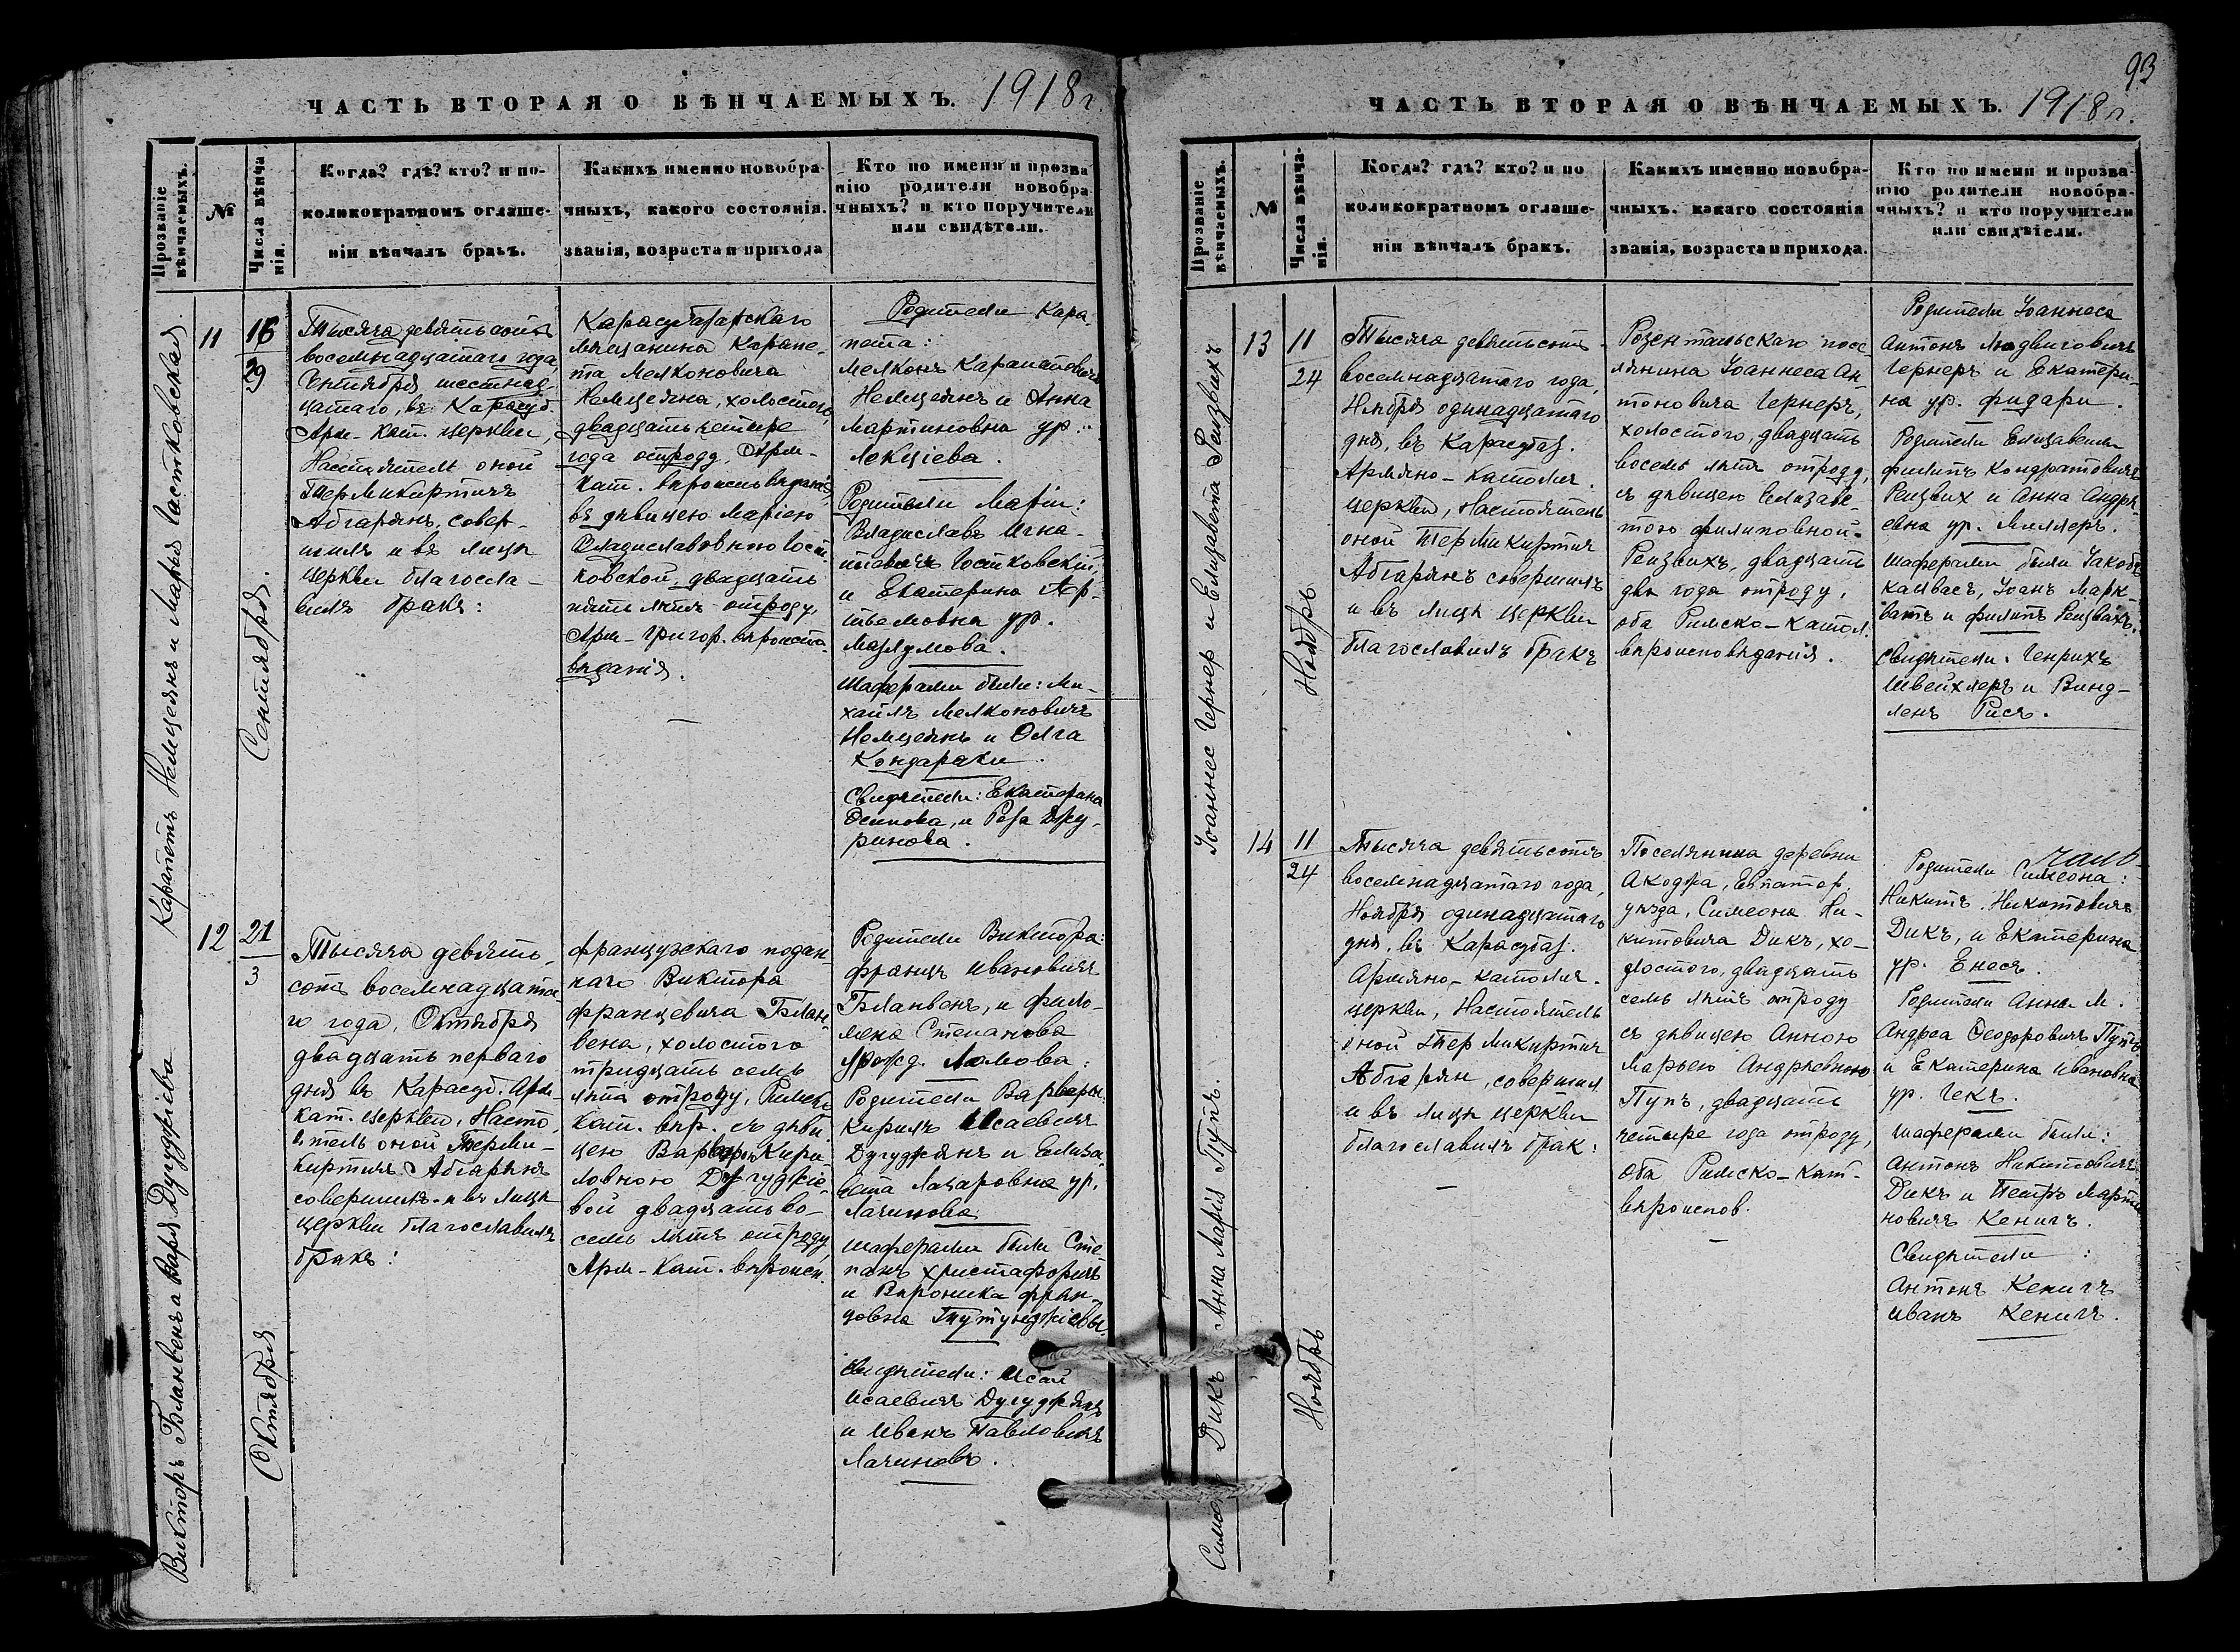 ЧАСТЬ ВТОРАЯ О ВѢНЧАЕМЫХЪ. 1918 г.
Прозваніе вѣнчаемыхъ.
№
Числа вѣнча-
нія.
Когда? гдѣ? кто? и по-
коликократномъ оглаше-
ніи вѣнчалъ бракъ.
Какихъ именно новобра-
чныхъ, какого состоянія.
званія, возраста и прихода
Кто по имени и прозва
нію родители новобра
чныхъ? и кто поручители
или свидѣтели.
Карапетъ Немцеянъ и Марія Гостковская.
11
16
29
Сентября.
Тысяча девятьсотъ
восемнадцатаго года,
Сентября шестнад-
цатаго, въ Карасуб.
Арм- кат. церкви,
Настоятель оной
Теръ Микиртичъ
Абгарянъ, совер-
шилъ и въ лицѣ
церкви благосла-
вилъ бракъ:
Карасубазарскаго
мѣщанина Карапе-
та Мелконовича
Немцеяна, холостого,
двадцать четыре
года отроду, Арм-
кат. вѣроисповѣданія,
съ дѣвицею Маріею
Владиславовною Гост-
ковской, двадцать
пять лѣтъ отроду,
Арм- Григор. вѣроиспо-
вѣданія.
Родители Кара-
пета:
Мелконъ Карапетовичъ
Немцеянъ и Анна
Мартиновна ур.
Локціева.
Родители Маріи:
Владиславъ Игна-
тіевичъ Гостковскій,
и Екатерина Ар-
темовна ур.
Мазлумова.
Шаферами были: Ми-
хаилъ Мелконовичъ
Немцеянъ и Олга
Кондараки.
Свидѣтели: Екатерина
Осипова, и Роза Дру-
ринова.
Викторъ Бланвенъ а Варя Дугуджіева
12
21
3
Октября
Тысяча девять-
сотъ восемнадцата-
го года, Октября
двадцать перваго
дня въ Карасуб. Арм-
кат. церкви, Насто-
ятель оной Теръ Ми-
киртичъ Абгарянъ
совершилъ и въ лицѣ
церкви благославилъ
бракъ:
французскаго подан-
наго Виктора
Францевича Блан-
вена, холостого
тридцать семь
лѣтъ отроду, Римско
кат. вѣр. съ дѣви-
цею Варварою Кири-
ловною Дугуджіе-
вой двадцать во-
семь лѣтъ отроду,
Арм- кат. вѣроисп.
Родители Виктора:
Францъ Ивановичъ
Бланвенъ, и Фило-
мена Степанова
урожд. Ломова:
Родители Варвары
Кирилъ Исаевичъ
Дугуджянъ и Елиза-
вета Лазаровна ур.
Лачинова
Шаферами были Сте-
панъ Христофоричъ
и Вѣроника Фран-
цовна Тутунджіевы.
Свидѣтели: Исай
Исаевичъ Дугуджянъ
и Иванъ Павловичъ
Лачиновъ.
93
ЧАСТЬ ВТОРАЯ О ВѢНЧАЕМЫХЪ. 1918 г.
Прозваніе вѣнчаемыхъ.
№
Числа вѣнча-
нія.
Когда? гдѣ? кто? и по
коликократномъ оглаше-
ніи вѣнчалъ бракъ.
Какихъ именно новобра-
чныхъ. какаго состоянія
званія, возраста и прихода.
Кто по имени и прозва-
нію родители новобра-
чныхъ? и кто поручители
или свидѣтели.
Іоаннес Гернер и Елизавета Рецвихъ
13
11
24
Ноябрь
Тысяча девятьсотъ
восемнадцатаго года,
Ноября одинадцатаго
дня, въ Карасубаз.
Армяно- католич.
церкви, Настоятель
оной Тер Микиртич
Абгарянъ совершилъ
и въ лицѣ церкви
благославилъ бракъ
Розентальскаго посе-
лянина Іоаннеса Ан-
тоновича Гернеръ,
холостого, двадцать
восемь лѣтъ отроду,
съ дѣвицею Елизаве-
тою Филиповной
Рецвихъ, двадцать
два года отроду,
оба Римско- катол.
вѣроисповѣданія.
Родители Іоаннеса
Антонъ Людвиговичъ
Гернеръ и Екатери-
на ур. Фидари.
Родители Елизаветы
Филипъ Кондратовичъ
Рецвих и Анна Андре-
евна ур. Миллеръ.
Шаферами были Іакобъ
Камвасъ, Іоанъ Марк-
ватъ и Филипъ Рецвихъ.
Свидѣтели: Генрихъ
Швейхлеръ и Винд-
ленъ Рисъ.
Симеонъ Дикъ Анна Марія Пупъ.
14
11
24
Ноябрь
Тысяча девятьсотъ
восемнадцатаго года,
Ноября одинадцатаго
дня, въ Карасубаз.
Армяно- католич.
церкви, Настоятель
оной Тер Микиртич
Абгарян, совершил
и въ лицѣ церкви
благославилъ брак:
Поселянина деревни
Акоджа, Евпатор.
уѣзда, Симеона Ни-
китовича Дикъ, хо-
лостого, двадцать
семь лѣтъ отроду
съ дѣвицею Анною
Марьею Андреевною
Пупъ, двадцать
четыре года отроду,
Оба Римско- кат-
вѣроиспов.
Родители Симеона:
Никитъ Никитовичъ
Дикъ, и Екатерина
ур. Енесъ.
Родители Анны М.
Андрей Феодоровичъ Пупъ
и Екатерина Ивановна
ур. Чекъ.
Шаферами были:
Антонъ Никитовичъ
Дикъ и Петръ Марти-
новичъ Кенигъ.
Свидѣтели:
Антонъ Кенигъ
Иванъ Кенигъ.